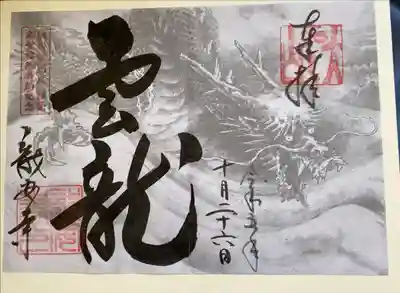 奉拝
令和五年
十月二十六日
雲龍
龍安寺